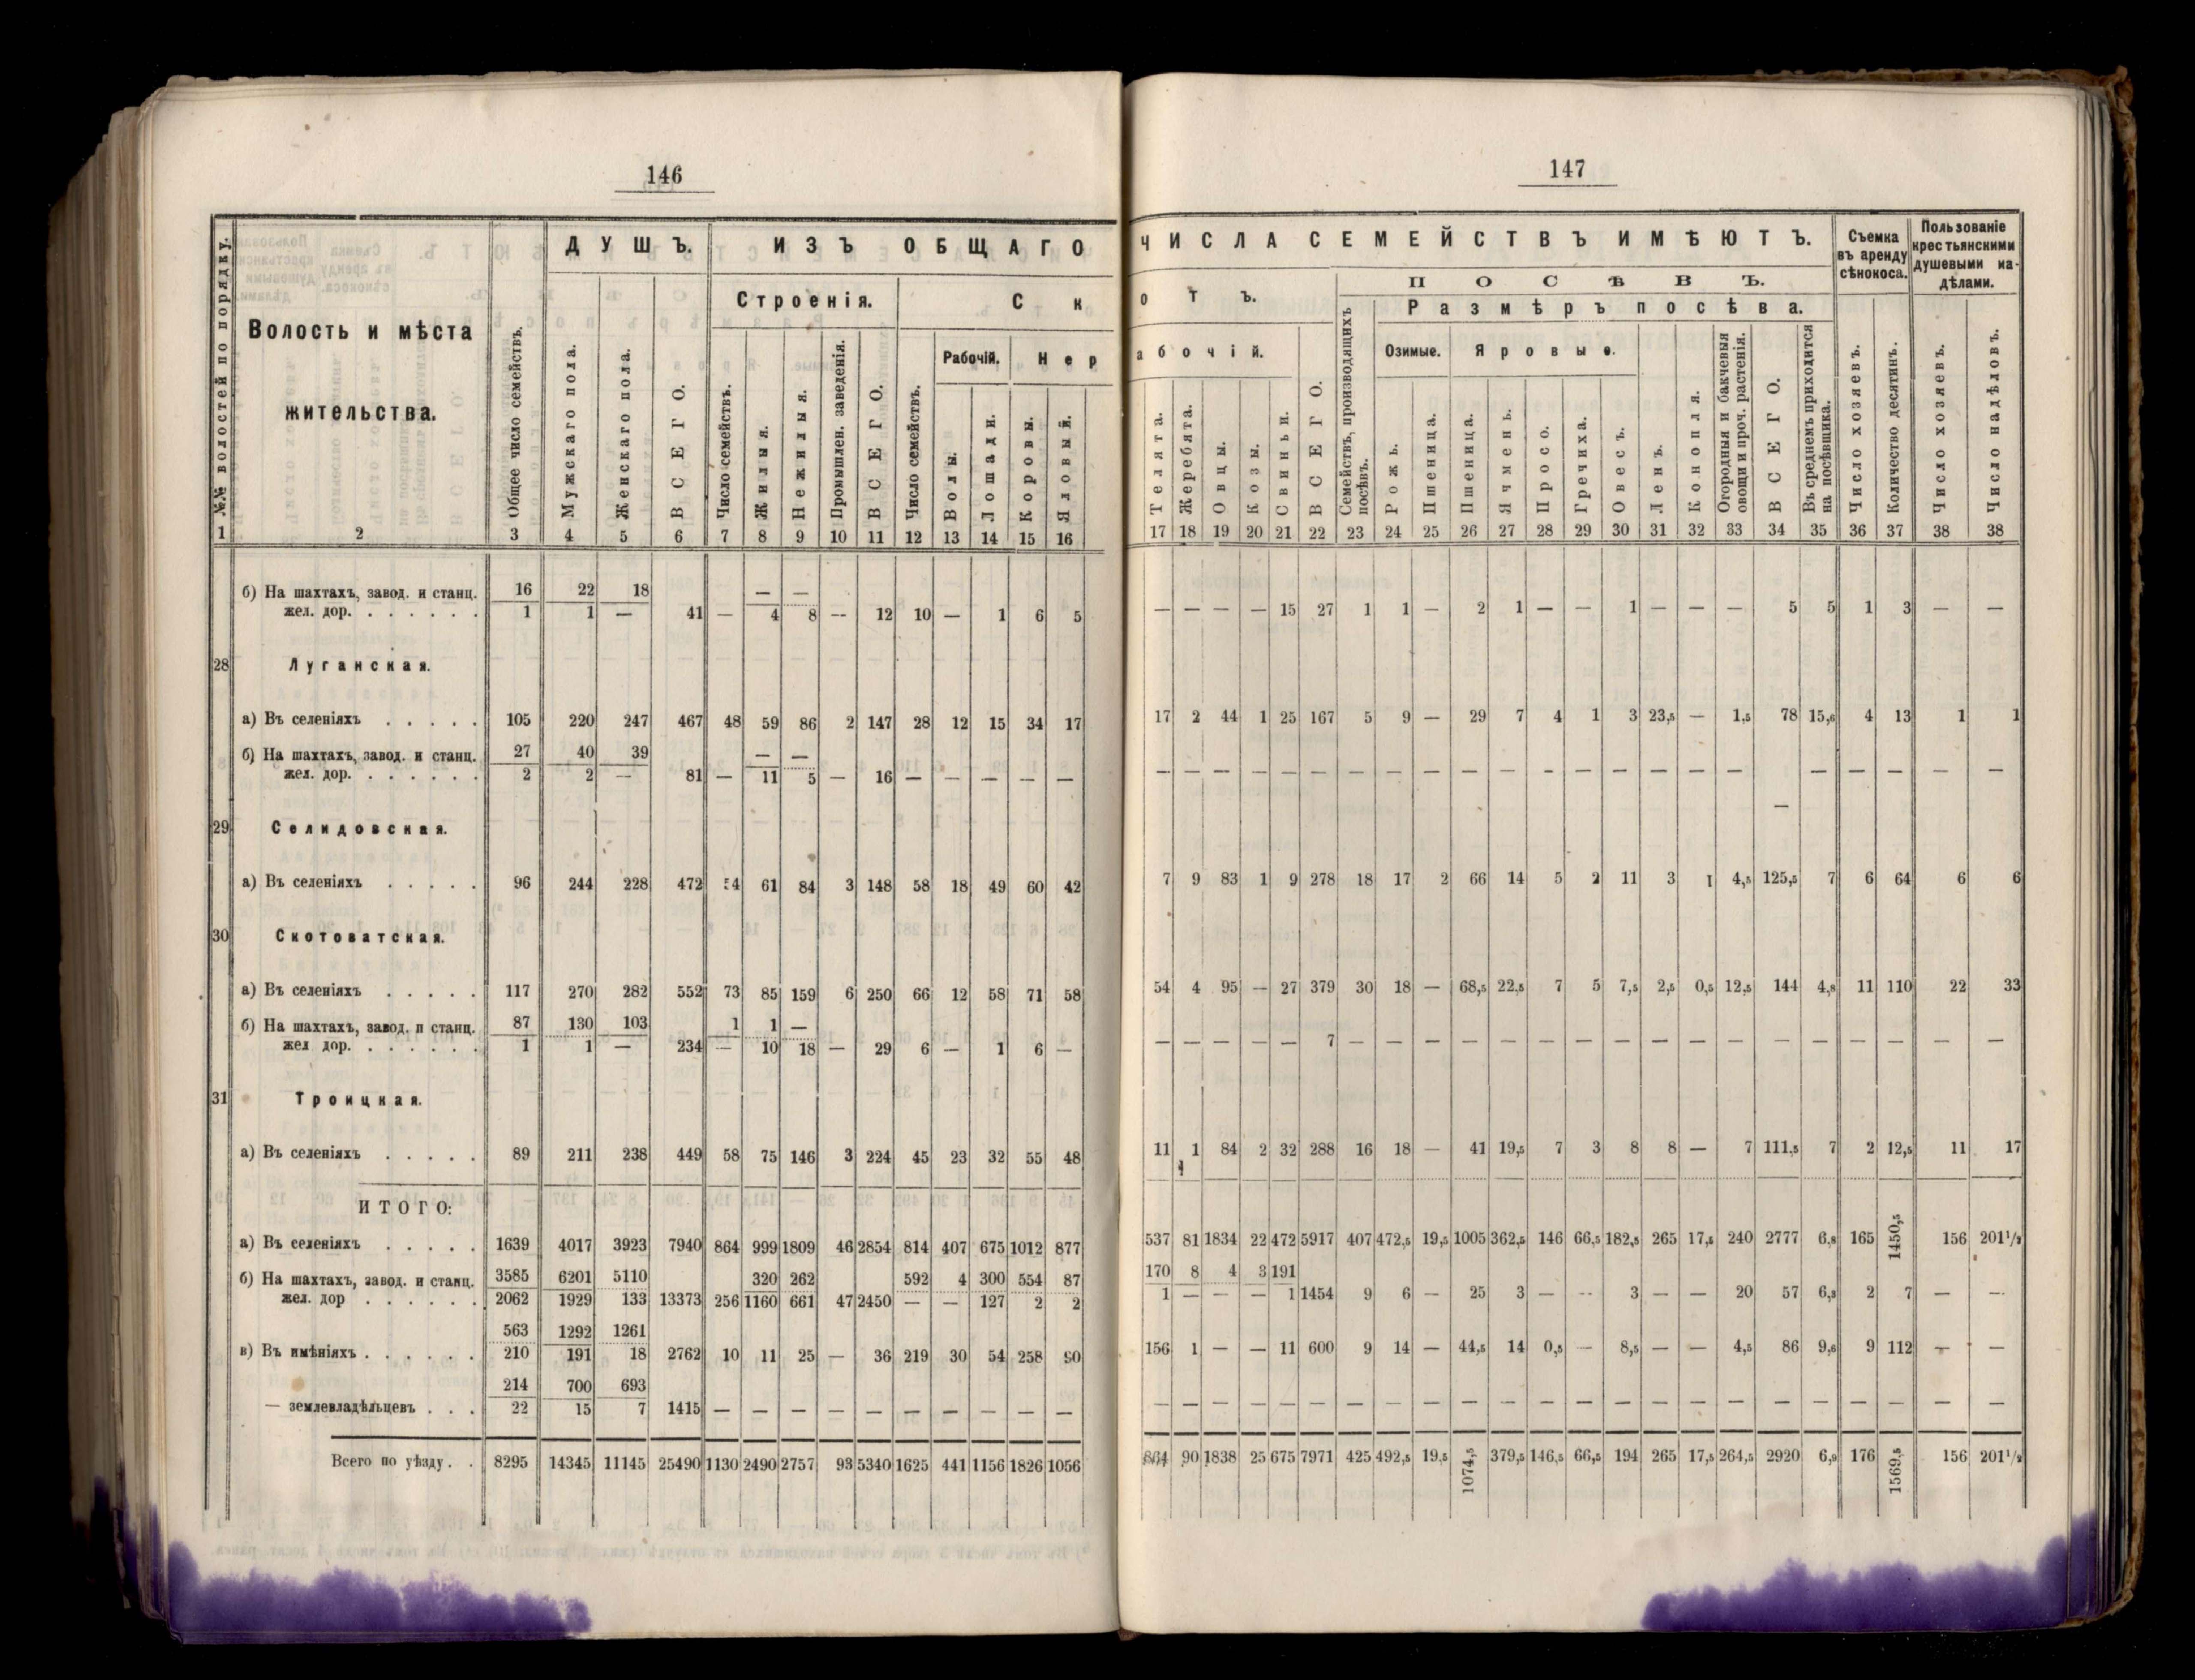 146
№№ волостей по порядку.
Волость и мѣста
жительства.
Общее число семействъ.
ДУШЪ.
Мужскаго пола.
Женскаго пола.
ВСЕГО.
ИЗЪ ОБЩАГО
Строенія.
Число семействъ.
Жилыя.
Нежилыя.
Промышлен. заведенія.
ВСЕГО.
С к
Число семействъ.
Рабочій.
Волы.
Лошади.
Нер
Коровы.
Яловый.
1 2 3 4 5 6 7 8 9 10 11 12 13 14 15 16
16 22 18 — —
б) На шахтахъ, завод. и станц.
жел. дор. . . . . . . 1 1 — 41 — 4 8 — 12 10 — 1 6 5
28 Луганская.
а) Въ селеніяхъ . . . . . 105 220 247 467 48 59 86 2 147 28 12 15 34 17
27 40 39 — —
б) На шахтахъ, завод. и станц.
жел. дор. . . . . . . 2 2 — 81 — 11 5 — 16 — — — — —
29 Селидовская.
а) Въ селеніяхъ . . . . . 96 244 228 472 54 61 84 3 148 58 18 49 60 42
30 Скотоватская.
а) Въ селеніяхъ . . . . . 117 270 282 552 73 85 159 6 250 66 12 58 71 58
87 130 103 1 1 —
б) На шахтахъ, завод. и станц.
жел дор. . . . . . . 1 1 — 234 — 10 18 — 29 6 — 1 6 —
31 Троицкая.
а) Въ селеніяхъ . . . . . 89 211 238 449 58 75 146 3 224 45 23 32 55 48
ИТОГО:
а) Въ селеніяхъ . . . . . 1639 4017 3923 7940 864 999 1809 46 2854 814 407 675 1012 877
3585 6201 5110 320 262 592 4 300 554 87
б) На шахтахъ, завод. и станц.
жел. дор . . . . . . 2062 1929 133 13373 256 1160 661 47 2450 — — 127 2 2
563 1292 1261
в) Въ имѣніяхъ . . . . . . 210 191 18 2762 10 11 25 — 36 219 30 54 258 90
214 700 693
— землевладѣльцевъ . . . 22 15 7 1415 — — — — — — — — — —
Всего по уѣзду . . 8295 14345 11145 25490 1130 2490 2757 93 5340 1625 441 1156 1826 1056
147
ЧИСЛА СЕМЕЙСТВЪ ИМѢЮТЪ.
о т ъ.
абочій.
Телята.
Жеребята.
Овцы.
Козы.
Свиньи.
ВСЕГО.
ПОСѢВЪ.
Семействъ, производящихъ
посѣвъ.
Размѣръ посѣва.
Озимые.
Рожь.
Пшеница.
Яровые.
Пшеница.
Ячмень.
Просо.
Гречиха.
Овесъ.
Ленъ.
Конопля.
Огородныя и бакчевыя
овощи и проч. растенія.
ВСЕГО.
Въ среднемъ приходится
на посѣвщика.
Съемка
въ аренду
сѣнокоса.
Число хозяевъ.
Количество десятинъ.
Пользованіе
крестьянскими
душевыми на-
дѣлами.
Число хозяевъ.
Число надѣловъ.
17 18 19 20 21 22 23 24 25 26 27 28 29 30 31 32 33 34 35 36 37 38 38
— — — — 15 27 1 1 — 2 1 — — 1 — — — 5 5 1 3 — —
17 2 44 1 25 167 5 9 — 29 7 4 1 3 23,5 — 1,5 78 15,6 4 13 1 1
— — — — — — — — — — — — — — — — — — — — — —
—
7 9 83 1 9 278 18 17 2 66 14 5 2 11 3 1 4,5 125,5 7 6 64 6 6
54 4 95 — 27 379 30 18 — 68,5 22,5 7 5 7,5 2,5 0,5 12,5 144 4,8 11 110 22 33
— — — — — 7 — — — — — — — — — — — — — — — — —
11 1 84 2 32 288 16 18 — 41 19,5 7 3 8 8 — 7 111,5 7 2 12,5 11 17
537 81 1834 22 472 5917 407 472,5 19,5 1005 362,5 146 66,5 182,5 265 17,5 240 2777 6,8 165 1450,5 156 201½
170 8 4 3 191
1 — — — 1 1454 9 6 — 25 3 — — 3 — — 20 57 6,3 2 7 — —
156 1 — — 11 600 9 14 — 44,5 14 0,5 — 8,5 — — 4,5 86 9,6 9 112 — —
— — — — — — — — — — — — — — — — — — — — — — —
864 90 1838 25 675 7971 425 492,5 19,5 1074,5 379,5 146,5 66,5 194 265 17,5 264,5 2920 6,9 176 1569,5 156 201½